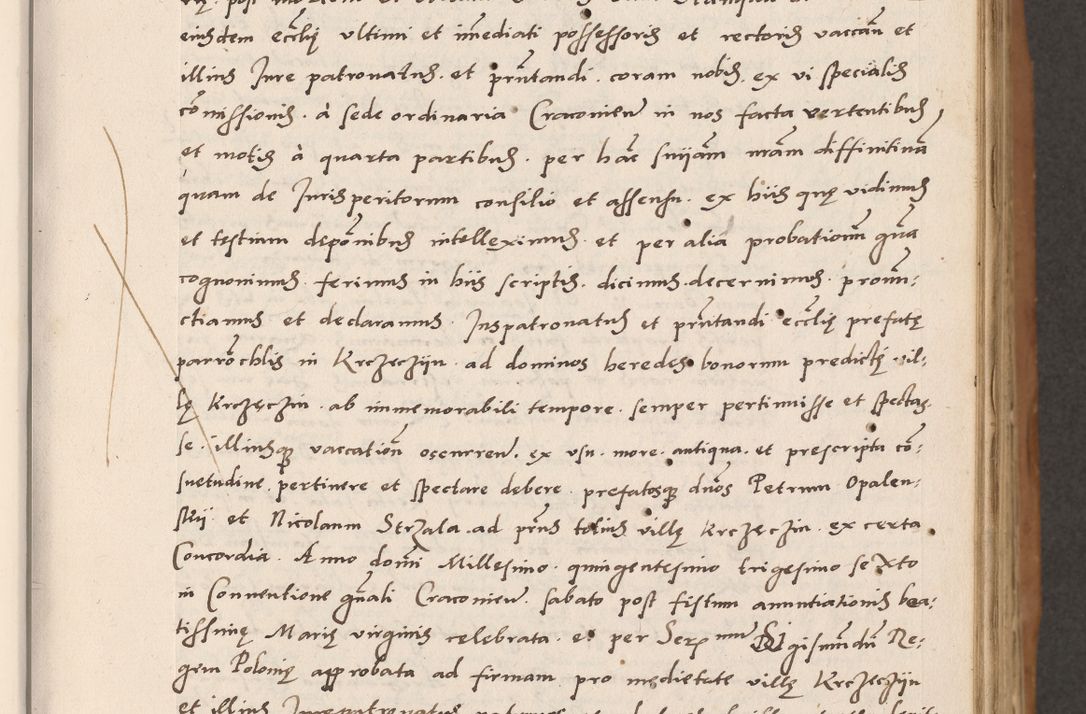 eiusdem eccłię ultimi et im̄ediati possessoris et rectoris vaccan̄ et
illius Jure patronatus. et prn̄tandi. coram nobis. ex vi specialis
com̄issionis. à sede ordinaria Cracovien̄ in nos facta vertentibus
et motis à quarta partibus. per hāc sn̄iām nrām diffinitivā
quam de Jurisperitorum consilio et assensu. ex hiis quę vidimus
et testium depōnibus intelleximus. et per alia probationum gn̄a
cognovimus. ferimus in hiis scriptis. dicimus. decernimus. pronun:
ctiamus et declaramus. Juspatronatus et prn̄tandi eccłię prefatę
parrōchlis in Krczeczijn. ad dominos heredes bonorum predictę vil:
lę Krczęczin. ab immemorabili tempore. semper pertinuisse et spectas:
se. illiusque vaccatiōn occurren̄. ex usu. more. antiqua. et prescripta cō:
suetudine. pertinere et spectare debere. prefatosque dn̄os Petrum Opalen:
skij et Nicolaum Strzala. ad prn̄s totius villę Krczęczin. ex certa
Concordia. Anno domi Millesimo. quingentesimo trigesimo sexto
in Conventione gn̄ali Cracovien̄. sabato post festum anuntiationis bea:
tissimę Marię virginis celebrata. et per Ser mum Sigismundū Re:
gem Polonię approbata ad firmam pro medietate villę Krczeczijn